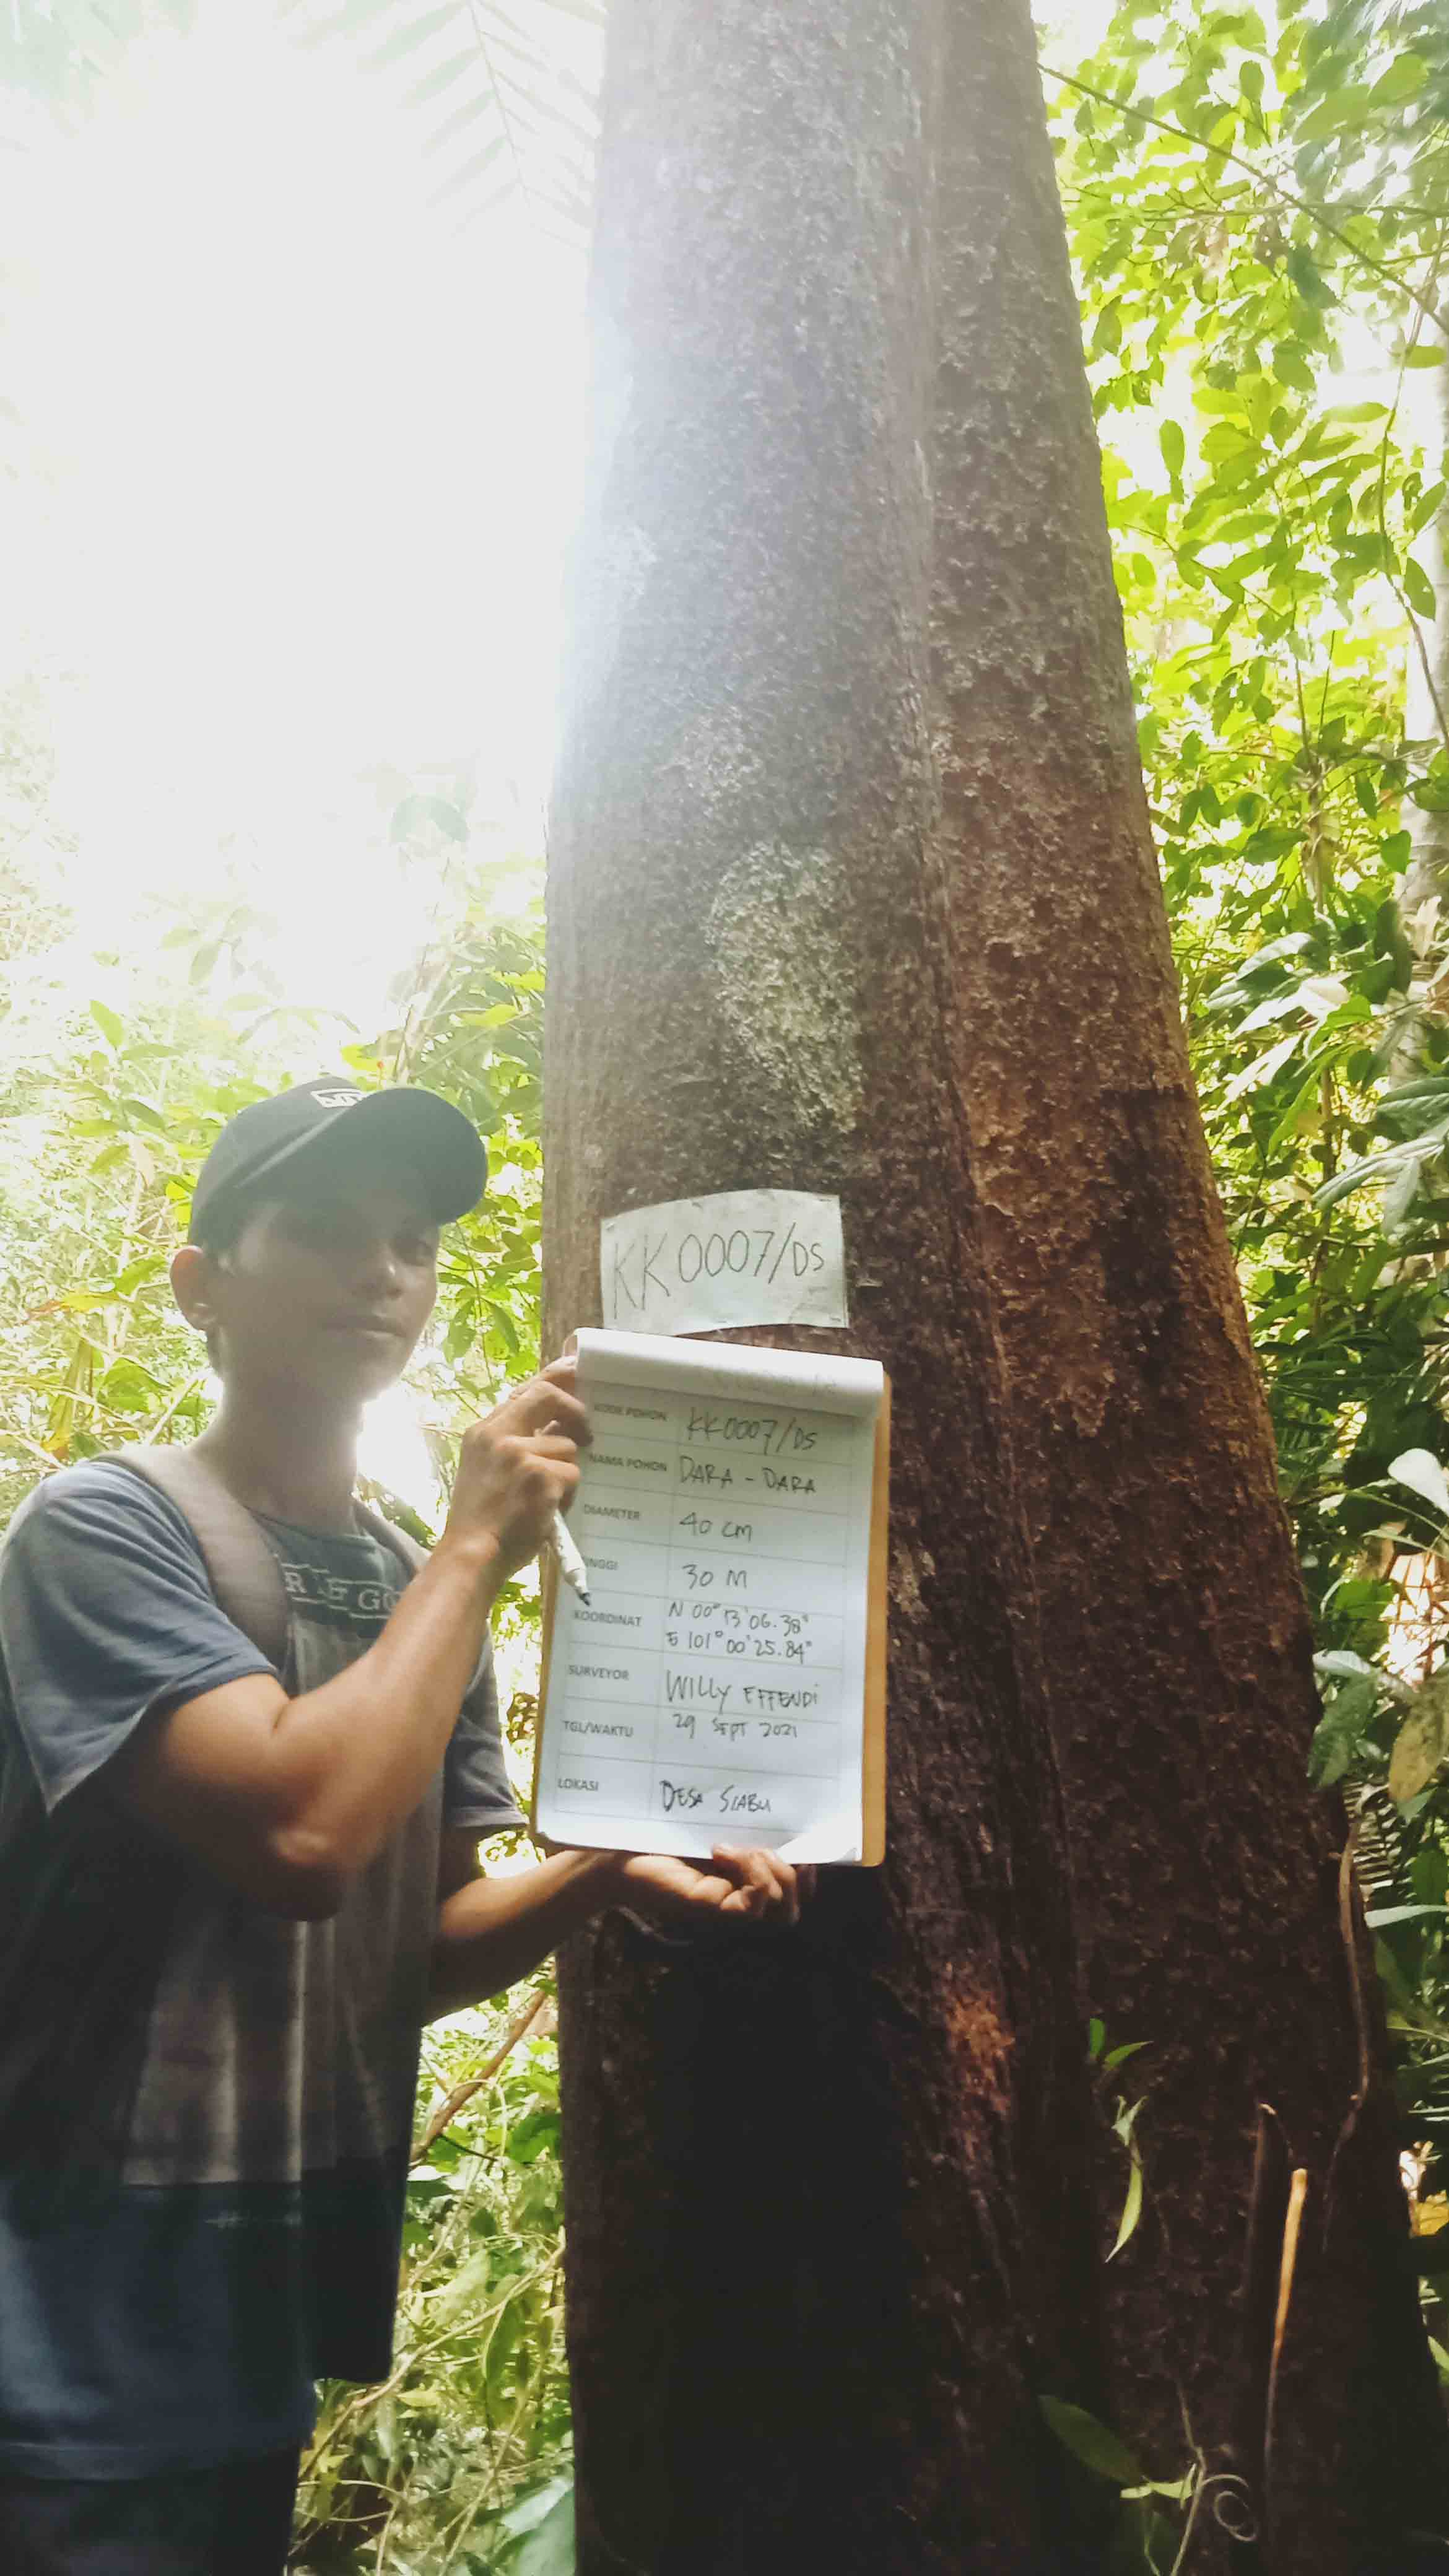 KK0007/DS
KODE POHON KK0007/DS
NAMA POHON DARA - DARA
DIAMETER 40 CM
INGGI 30 M
KOORDINAT N 00° 13' 06.38"
E 101° 00' 25.84"
SURVEYOR WILLY EFFENDI
TGL/WAKTU 29 SEPT 2021
LOKASI DESA SIABU